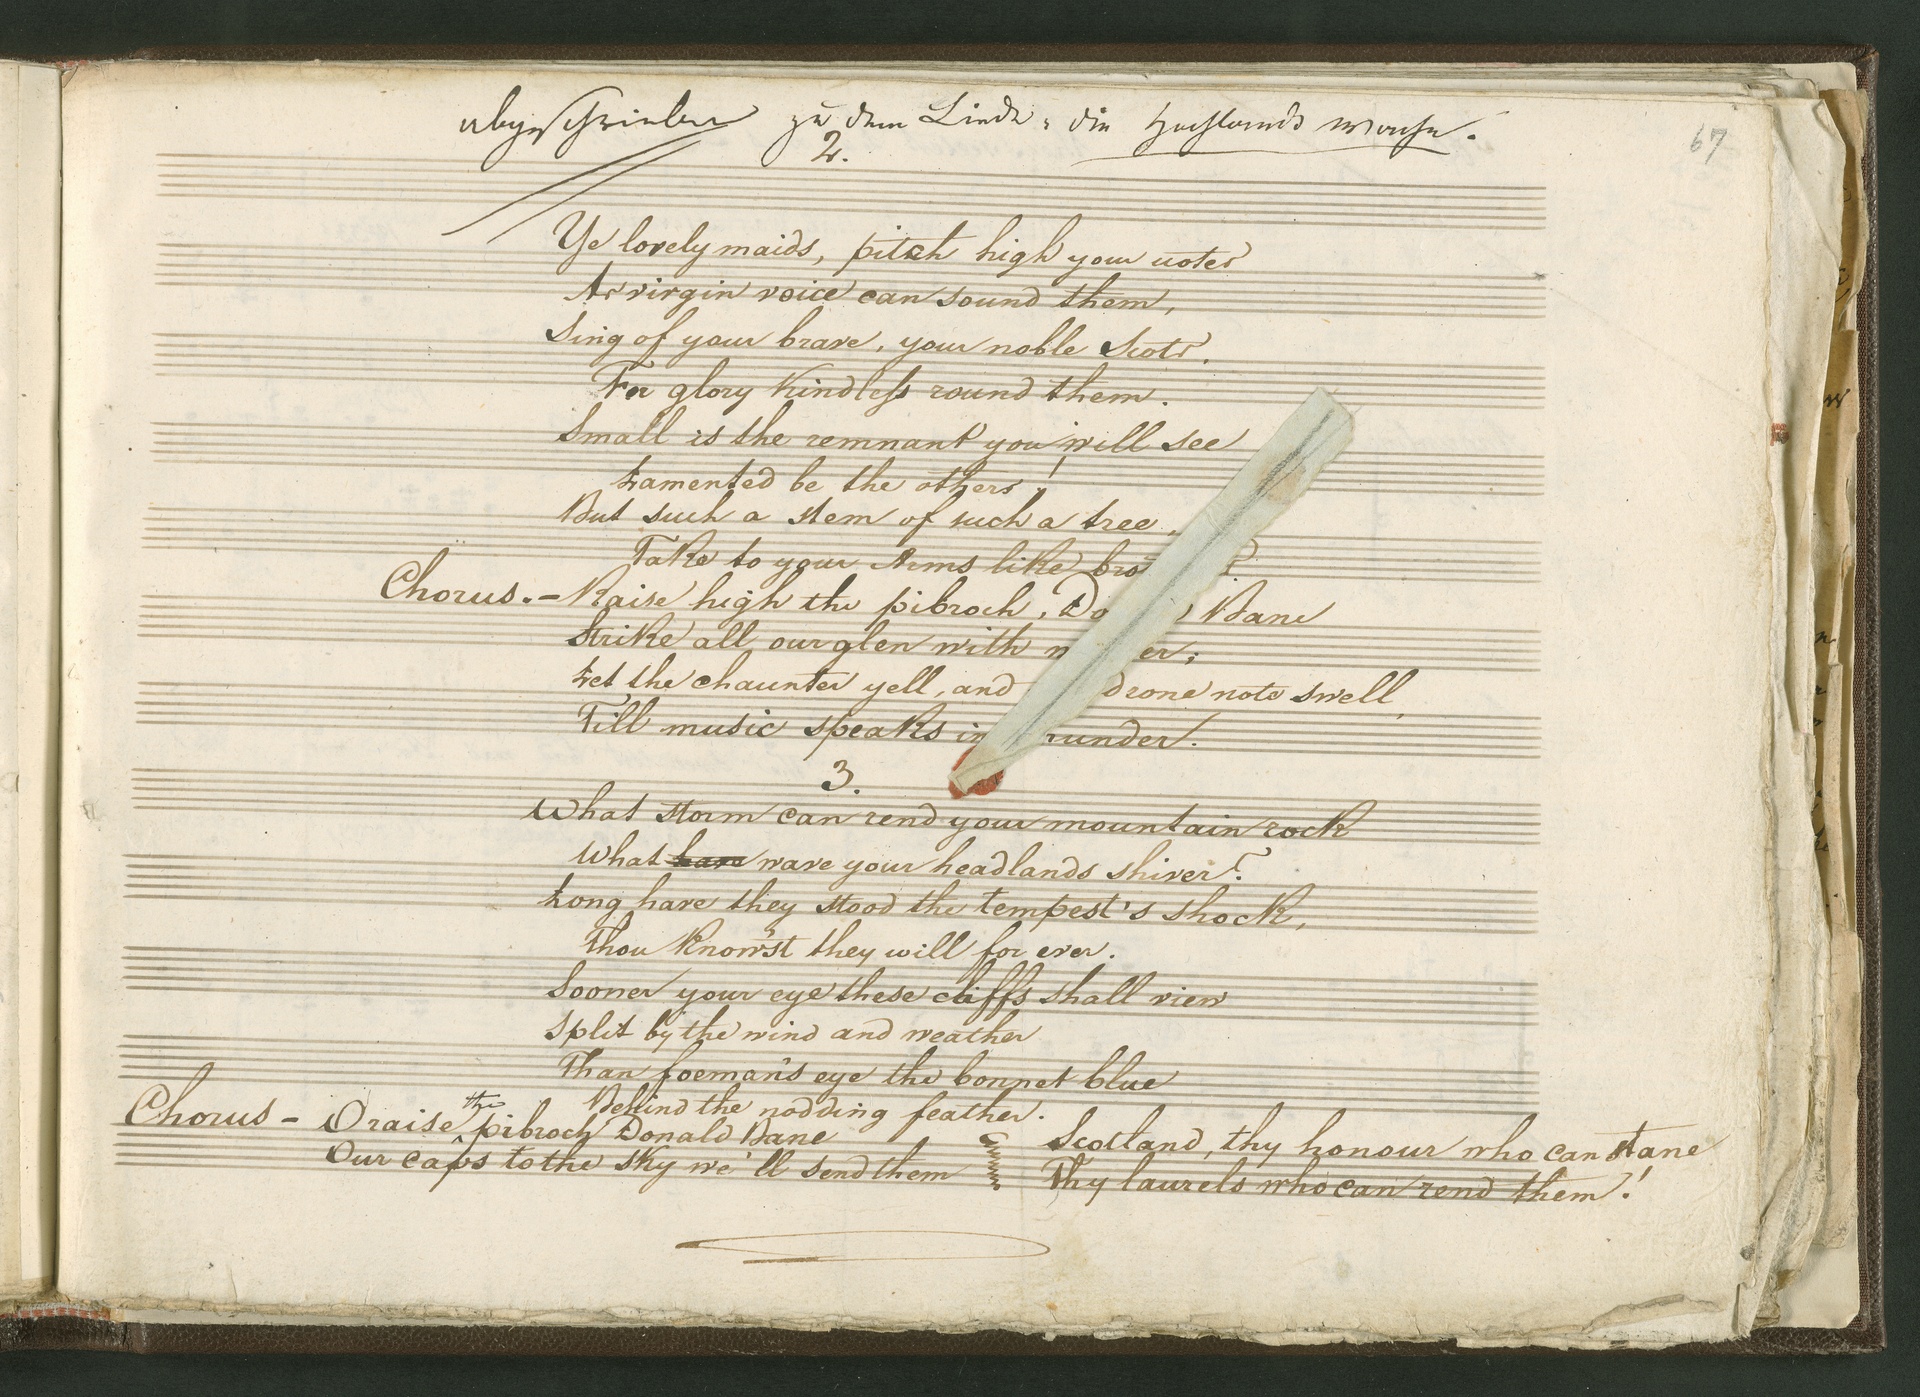 abgeschrieben zu dem Liede: die Hochlands wache.
67
2.
Ye lovely maids, pitch high your notes
As virgin voice can sound them,
Sing of your brave, your noble Scots.
For glory kindless round them.
Small is the remnant you will see
Lamented be the others!
But such a stem of such a tree,
Take to your Arms like
Chorus. - Raise high the pibroch, Bane
Strike all our glen with
Let the chaunter yell, and drone note swell,
Till music speaks in
3.
What storm can rend your mountain rock
What wave your headlands shiver?
Long have they stood the tempest's shock,
Thou know'st they will for ever.
Sooner your eye these cliffs shall view
Split by the wind and weather
Than foeman's eye the bonnet blue
Behind the nodding feather.
Chorus - O raise the pibroch Donald Bane
Our caps to the sky we'll send them
Scotland, thy honour who can stane
Thy laurels who can rend them!